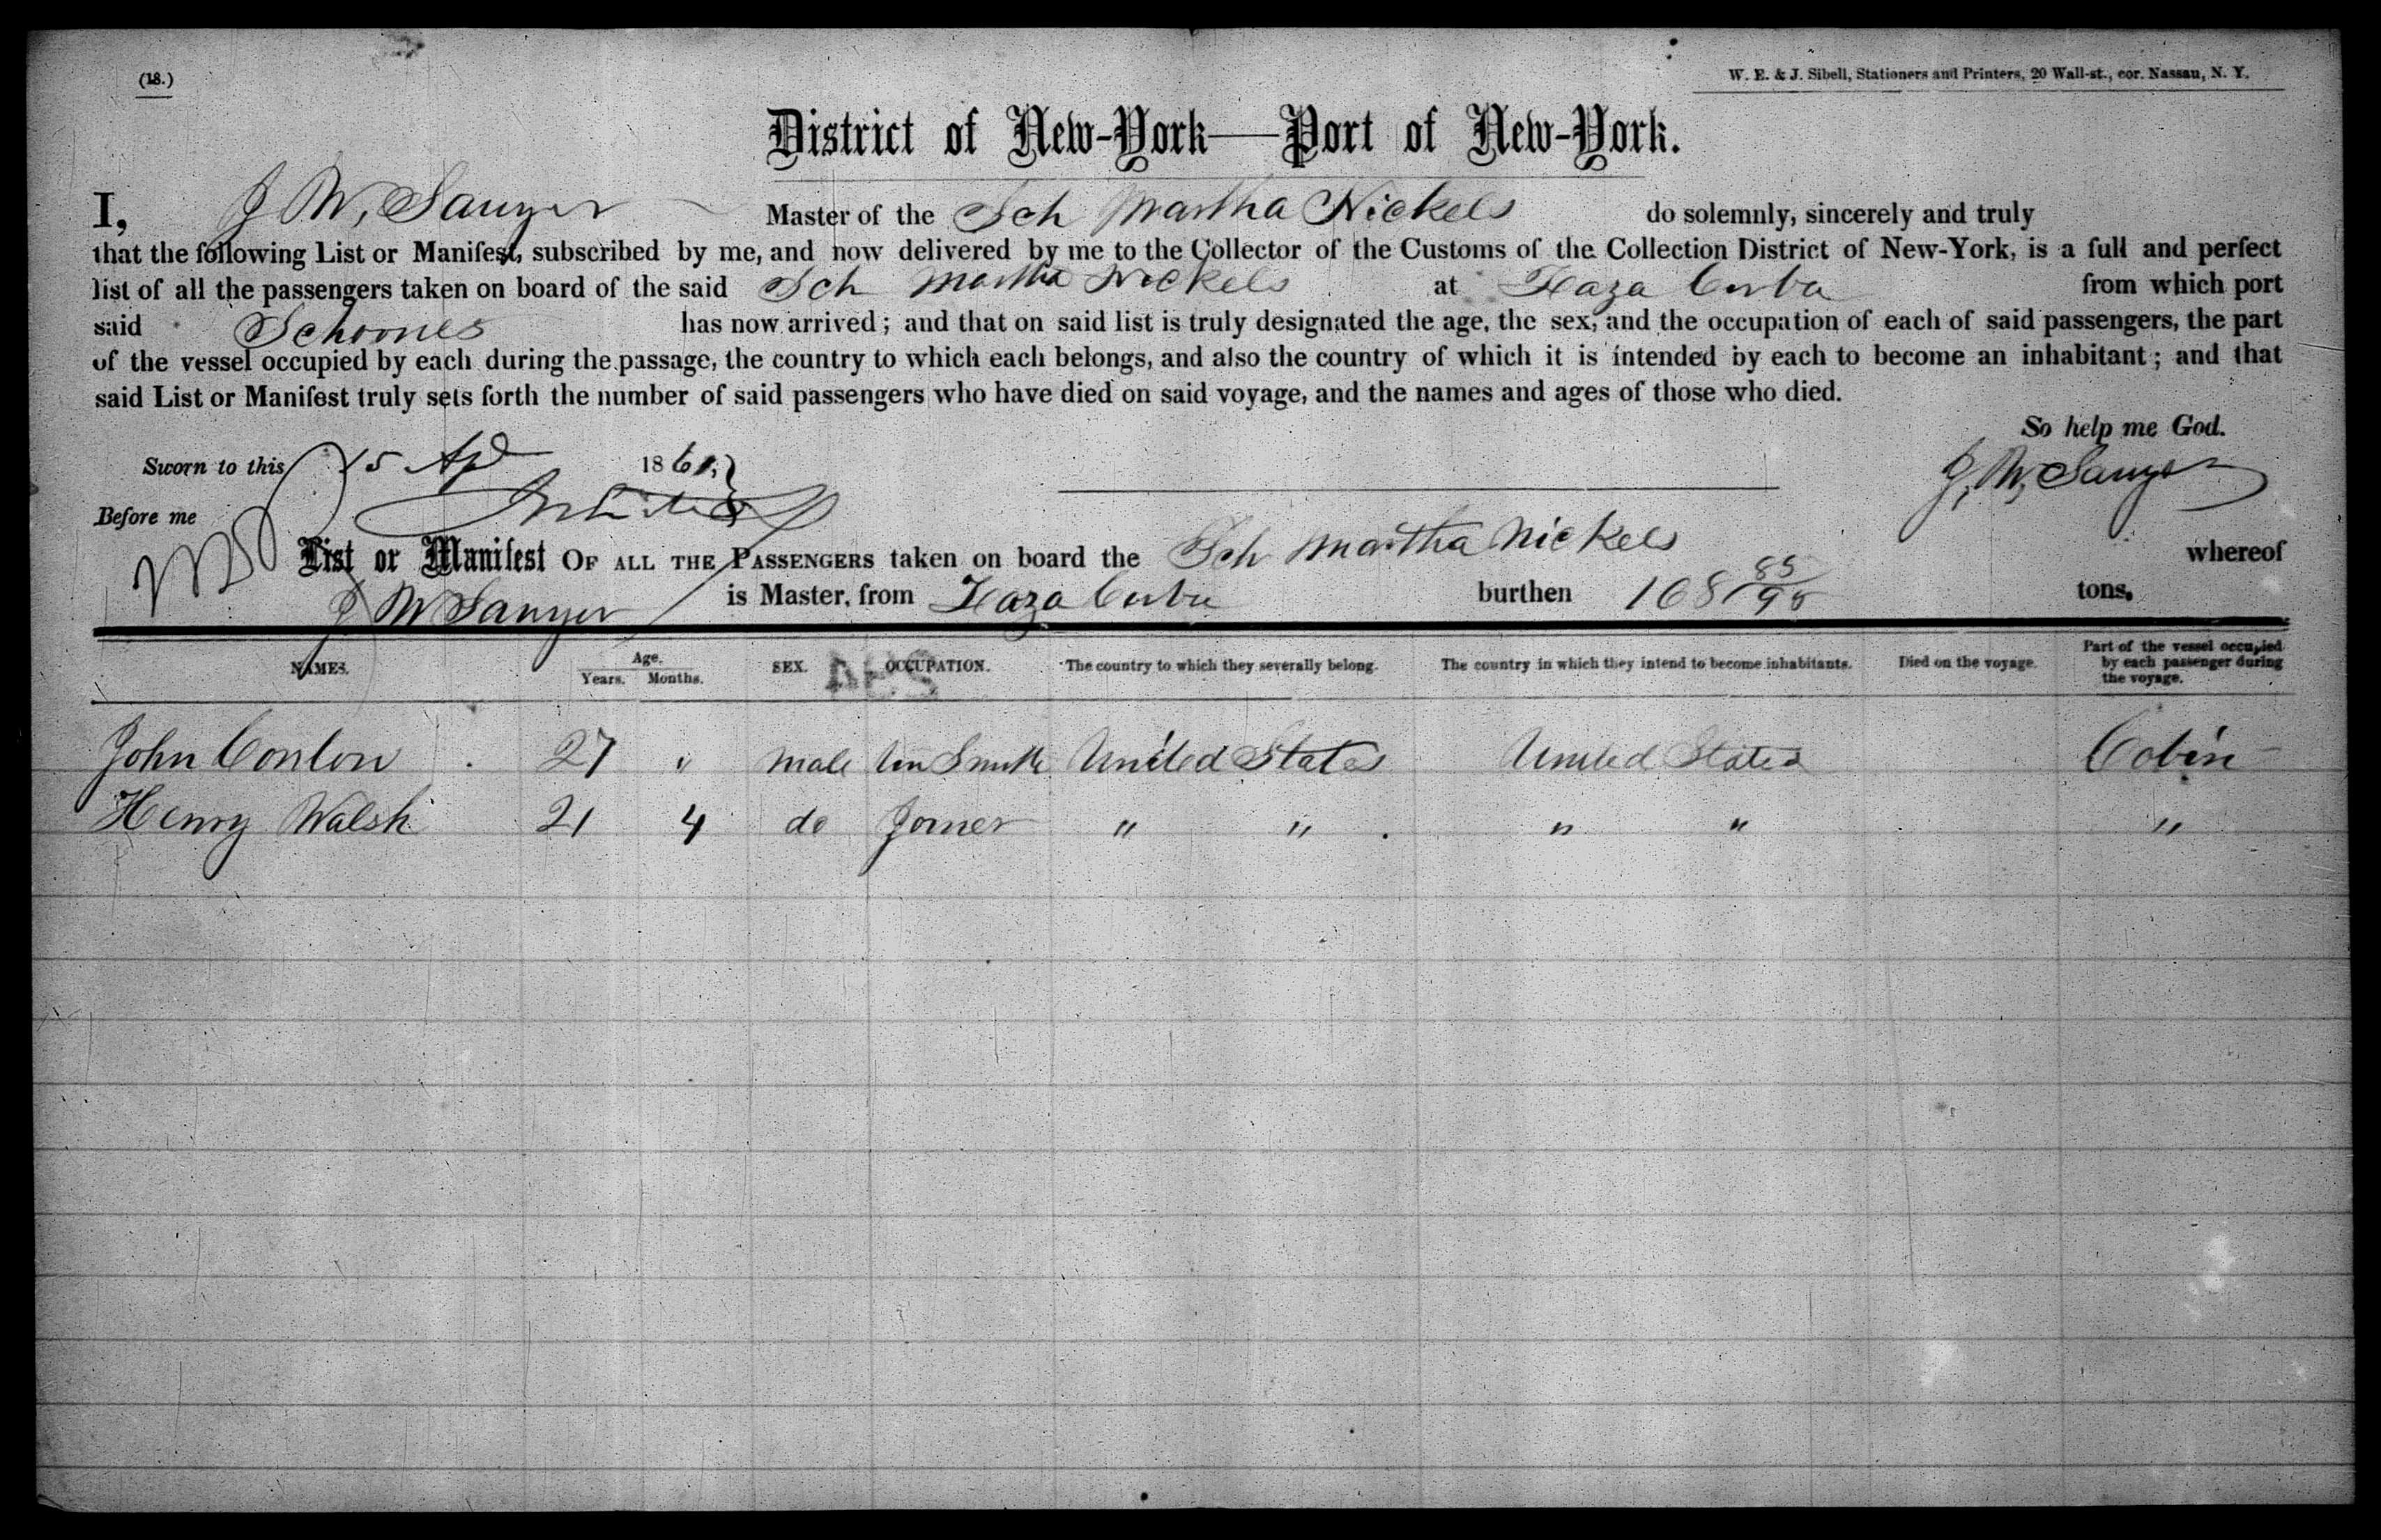 (18.)
W. E. & J. Sibell, Stationers and Printers, 20 Wall-st., cor. Nassau, N. Y.
District of New-York—Port of New-York.
I, J W, Sawyer Master of the Sch Martha Nickels do solemnly, sincerely and truly
that the following List or Manifest, subscribed by me, and now delivered by me to the Collector of the Customs of the Collection District of New-York, is a full and perfect
list of all the passengers taken on board of the said Sch Martha Nickels at Zaza Cuba from which port
said Schooner has now arrived; and that on said list is truly designated the age, the sex, and the occupation of each of said passengers, the part
of the vessel occupied by each during the passage, the country to which each belongs, and also the country of which it is intended by each to become an inhabitant; and that
said List or Manifest truly sets forth the number of said passengers who have died on said voyage, and the names and ages of those who died.
So help me God.
Sworn to this 15 Apl 1861,
J, W, Sawyer
Before me
List or Manifest OF ALL THE PASSENGERS taken on board the Sch Martha Nickels whereof
J W Sawyer is Master, from Zaza Cuba burthen 168 85/95 tons,
NAMES. Age. Years. Months. SEX. OCCUPATION. The country to which they severally belong. The country in which they intend to become inhabitants. Died on the voyage. Part of the vessel occupied by each passenger during the voyage.
John Conlon 27 " male Tin Smith United States United States Cabin
Henry Walsh 21 4 do Joiner " " " " "